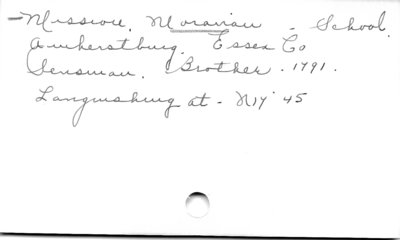 -Mission, Moravian - School.
Amherstburg. Essex Co
Sensman, Brother. 1791.
Languishing at - N 17 '45